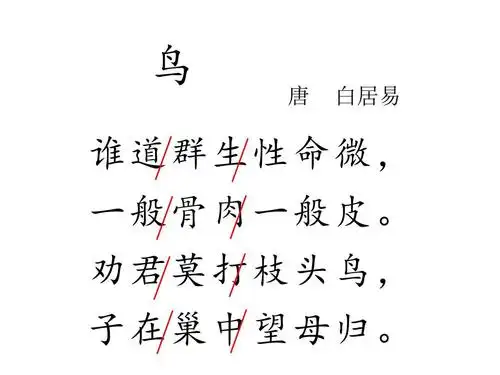 鸟
唐 白居易
谁道/群生/性命微，
一般/骨肉/一般皮。
劝君/莫打/枝头鸟，
子在/巢中/望母归。